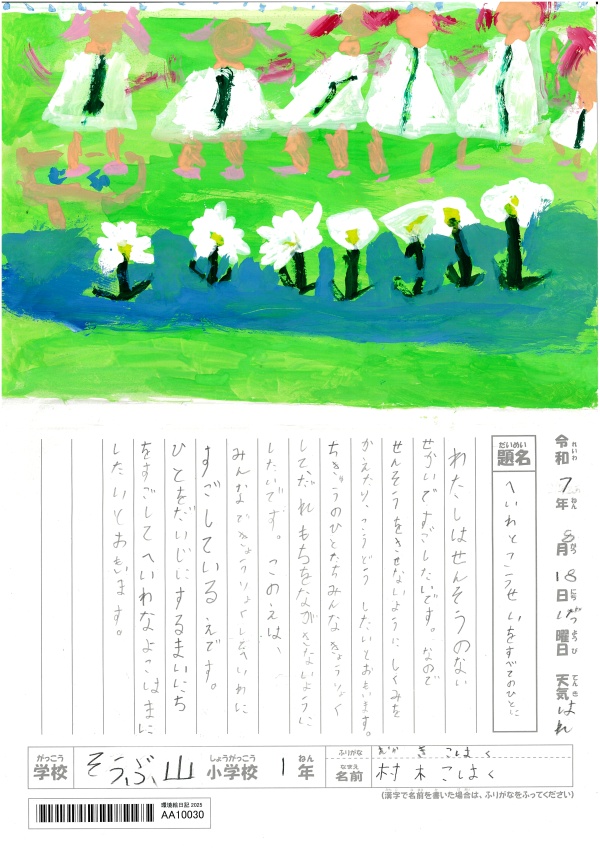 令和7年8月18日げつ曜日 天気 はれ
れいわ ねん がつ にち ようび てんき
だいめい
題名
へいわとこうせいをすべてのひとに
わたしはせんそうのない
せかいですごしたいです。なので
せんそうをさせないように しくみを
かえたり、こうどう したいとおもいます。
ちきゅうのひとたちみんな きょうりょく
して、だれもちをながさないように
したいです。このえは、
みんなできょうりょくしてへいわに
すごしている えです。
ひとをだいじにするまいにち
をすごして へいわなよこはまに
したいとおもいます。
がっこう
学校
そうぶ山
しょうがっこう
小学校
1
ねん
年
ふりがな
こはく
なまえ
名前
村木 こはく
(漢字で名前を書いた場合は、ふりがなをふってください)
環境絵日記 2025
AA10030